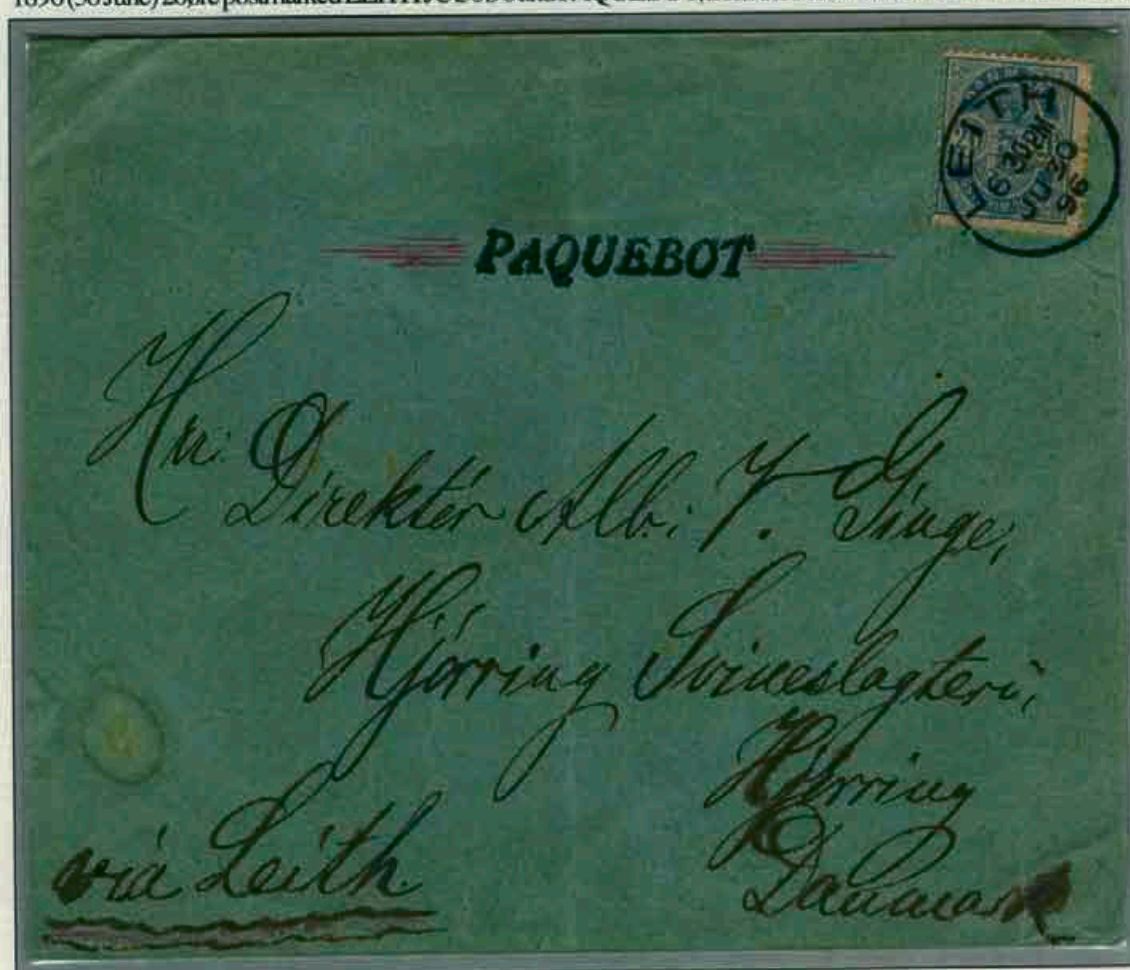 LEITH
6 30PM
JU 30
96
PAQUEBOT
Hr: Direktör Alb: J. Ginge,
Hjörring Svineslagteri,
Hjörring
Danmark
via Leith